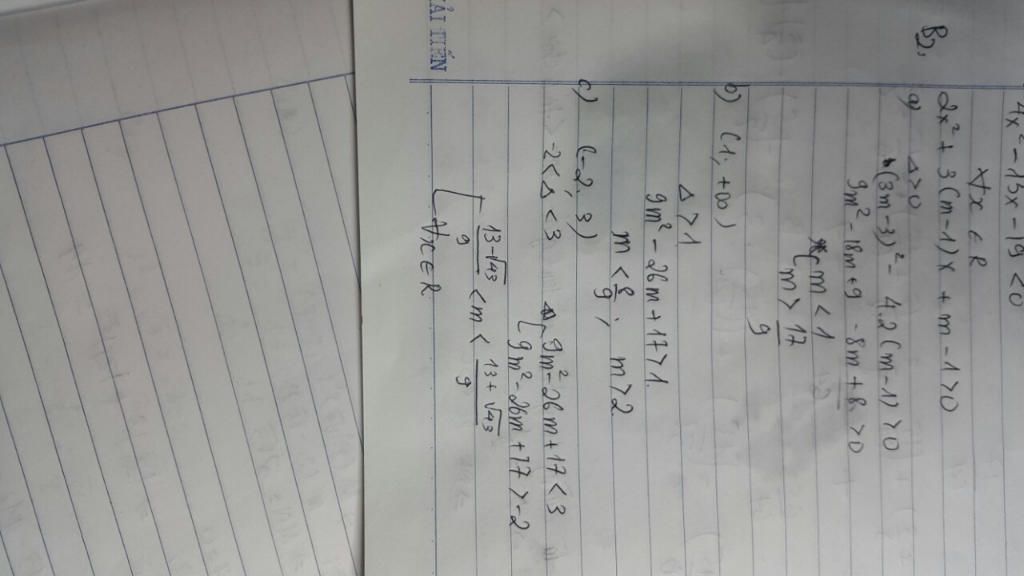 4x² - 15x - 19 < 0
∀x ∈ R
B3,
2x² + 3(m-1)x + m - 1 > 0
a) Δ > 0
(3m-3)² - 4.2(m-1) > 0
9m² - 18m + 9 - 8m + 8 > 0
m < 1
m > 17/9
b) (1; +∞)
Δ > 1
9m² - 26m + 17 > 1
m < 8/9; m > 2
c) (-2, 3)
-2 < Δ < 3 [ 9m² - 26m + 17 < 3
9m² - 26m + 17 > -2
[ (13-√43)/9 < m < (13+√43)/9
∀x ∈ R
CẢI TIẾN